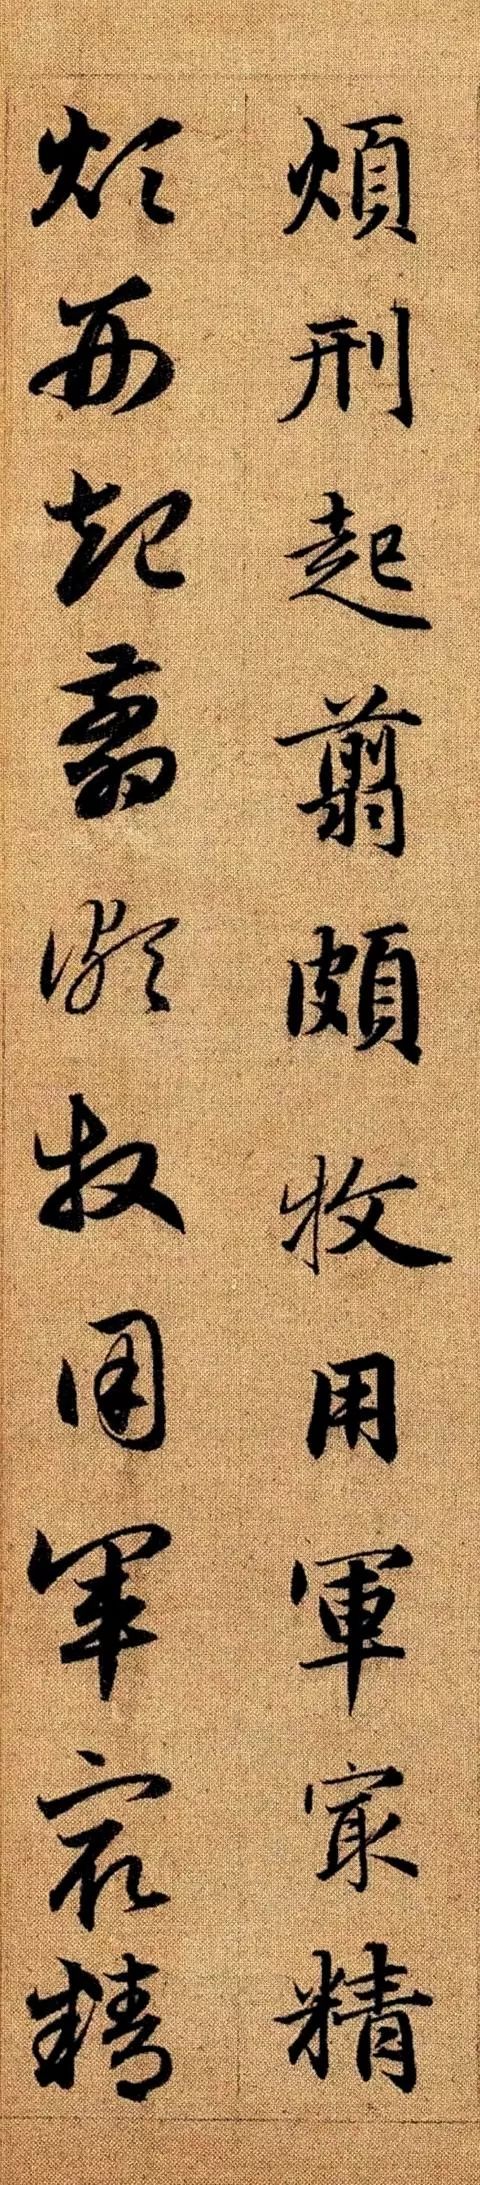 煩刑起翦頗牧用軍㝡精
煩刑起翦頗牧用軍㝡精